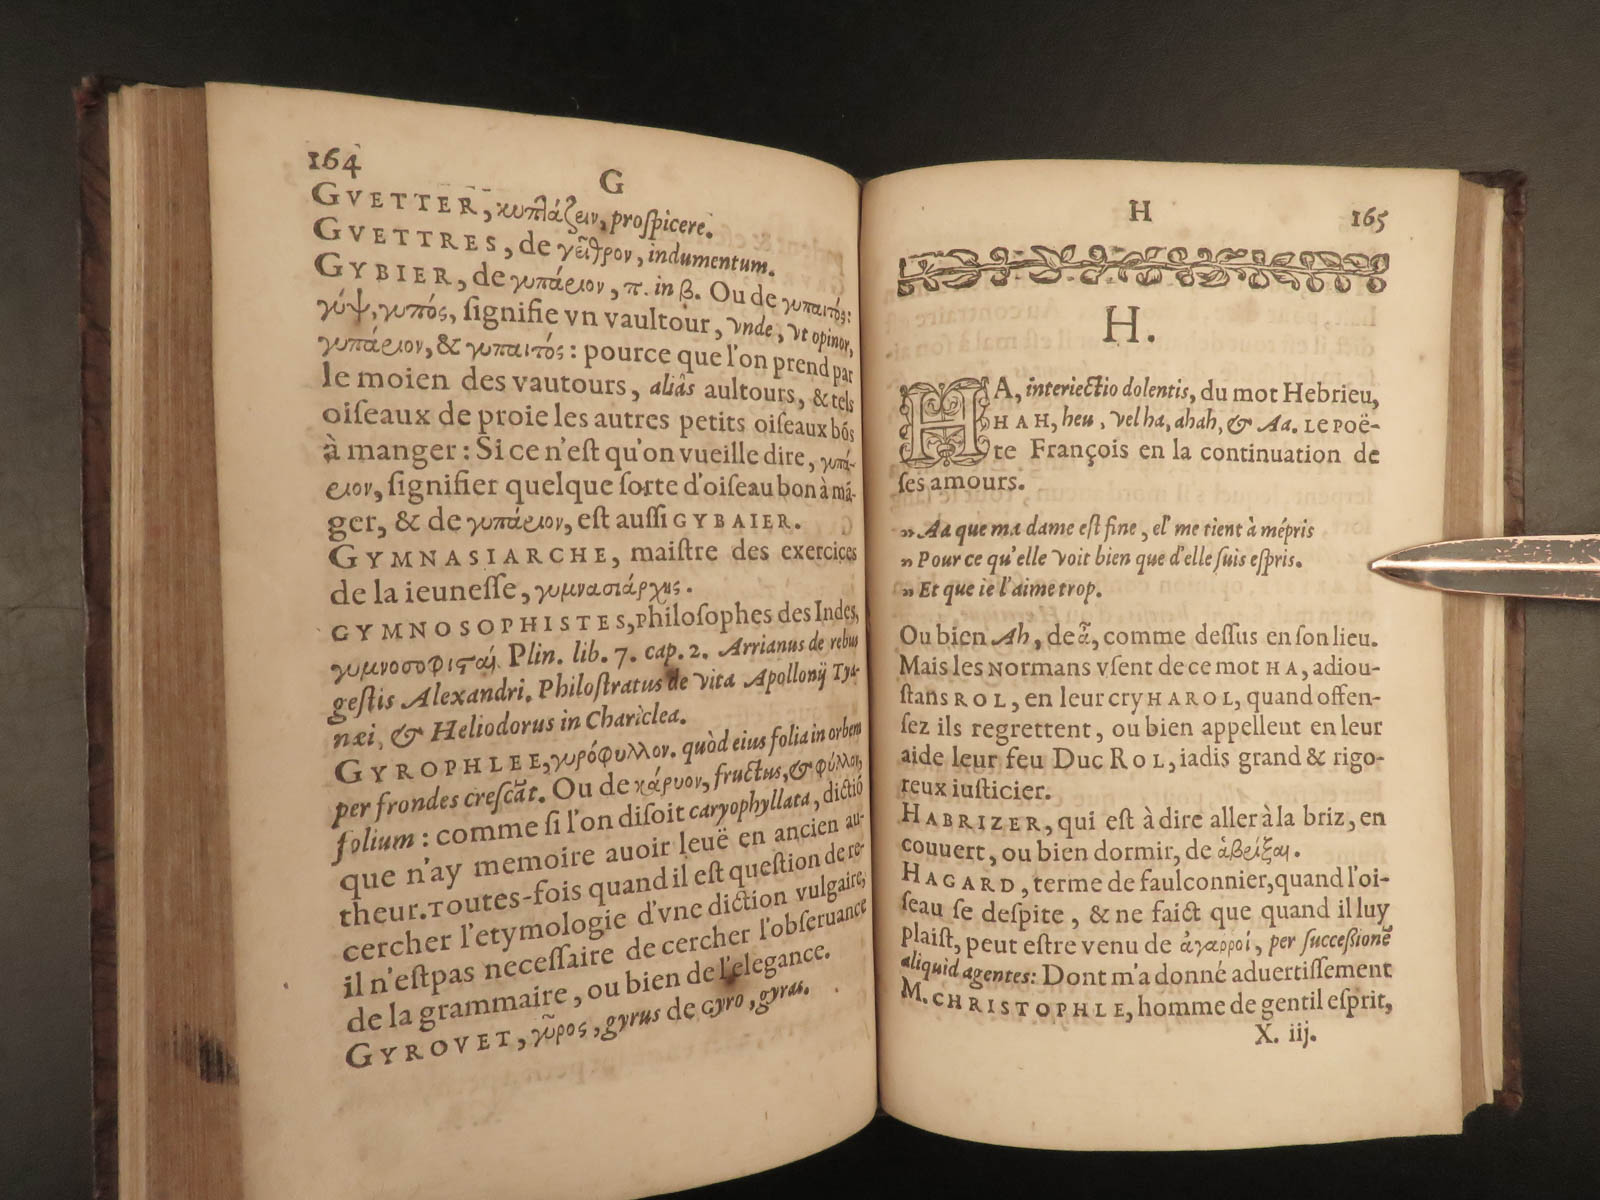 164
G
GVETTER, κυπλάζειν, proſpicere.
GVETTRES, de γεῖθρον, indumentum.
GYBIER, de γυπάειον, π. in β. Ou de γυπαιτός:
γύψ, γυπός, ſignifie vn vaultour, vnde, vt opinor,
γυπάειον, & γυπαιτός: pource que l'on prend par
le moien des vautours, aliâs aultours, & tels
oiſeaux de proie les autres petits oiſeaux bós
à manger: Si ce n'eſt qu'on vueille dire, γυπά-
ειον, ſignifier quelque ſorte d'oiſeau bon à mã-
ger, & de γυπάειον, eſt auſſi GYBAIER.
GYMNASIARCHE, maiſtre des exercices
de la ieuneſſe, γυμνασιάρχης.
GYMNOSOPHISTES, philoſophes des Indes,
γυμνοσοφισταί. Plin. lib. 7. cap. 2. Arrianus de rebus
geſtis Alexandri. Philoſtratus de vita Apollonij Tya-
næi, & Heliodorus in Chariclea.
GYROPHLEE, γυρόφυλλον. quòd eius folia in orbem
per frondes creſcãt. Ou de κάρυον, fructus, & φύλλον,
folium: comme ſi l'on diſoit caryophyllata, dictiõ
que n'ay memoire auoir leuë en ancien au-
theur. Toutes-fois quand il eſt queſtion de re-
cercher l'etymologie d'vne diction vulgaire,
il n'eſt pas neceſſaire de cercher l'obſeruance
de la grammaire, ou bien de l'elegance.
GYROVET, γῦρος, gyrus de Gyro, gyras.
H
165
H.
HA, interiectio dolentis, du mot Hebrieu,
HAH, heu, vel ha, ahah, & Aa. LE Poë-
te François en la continuation de
ſes amours.
„ Aa que ma dame eſt fine, el' me tient à mépris
„ Pour ce qu'elle voit bien que d'elle ſuis eſpris.
„ Et que ie l'aime trop.
Ou bien Ah, de ἆ, comme deſſus en ſon lieu.
Mais les Normans vſent de ce mot HA, adiou-
ſtans ROL, en leur cry HAROL, quand offen-
ſez ils regrettent, ou bien appellent en leur
aide leur feu Duc ROL, iadis grand & rigo-
reux iuſticier.
HABRIZER, qui eſt à dire aller à la briz, en
couuert, ou bien dormir, de ἀβρίξαι.
HAGARD, terme de faulconnier, quand l'oi-
ſeau ſe deſpite, & ne faict que quand il luy
plaiſt, peut eſtre venu de ἀγαρροί, per ſucceſſionē
aliquid agentes: Dont m'a donné aduertiſſement
M. CHRISTOPHLE, homme de gentil eſprit,
X. iij.